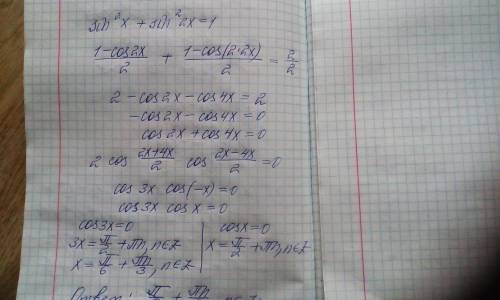 sin²x + sin²2x = 1
(1-cos2x)/2 + (1-cos(2·2x))/2 = 2/2
2 - cos2x - cos4x = 2
-cos2x - cos4x = 0
cos2x + cos4x = 0
2 cos (2x+4x)/2 cos (2x-4x)/2 = 0
cos3x cos(-x) = 0
cos3x cosx = 0
cos3x = 0 | cosx = 0
3x = π/2 + πn, n∈Z | x = π/2 + πn, n∈Z
x = π/6 + πn/3, n∈Z
Ответ: